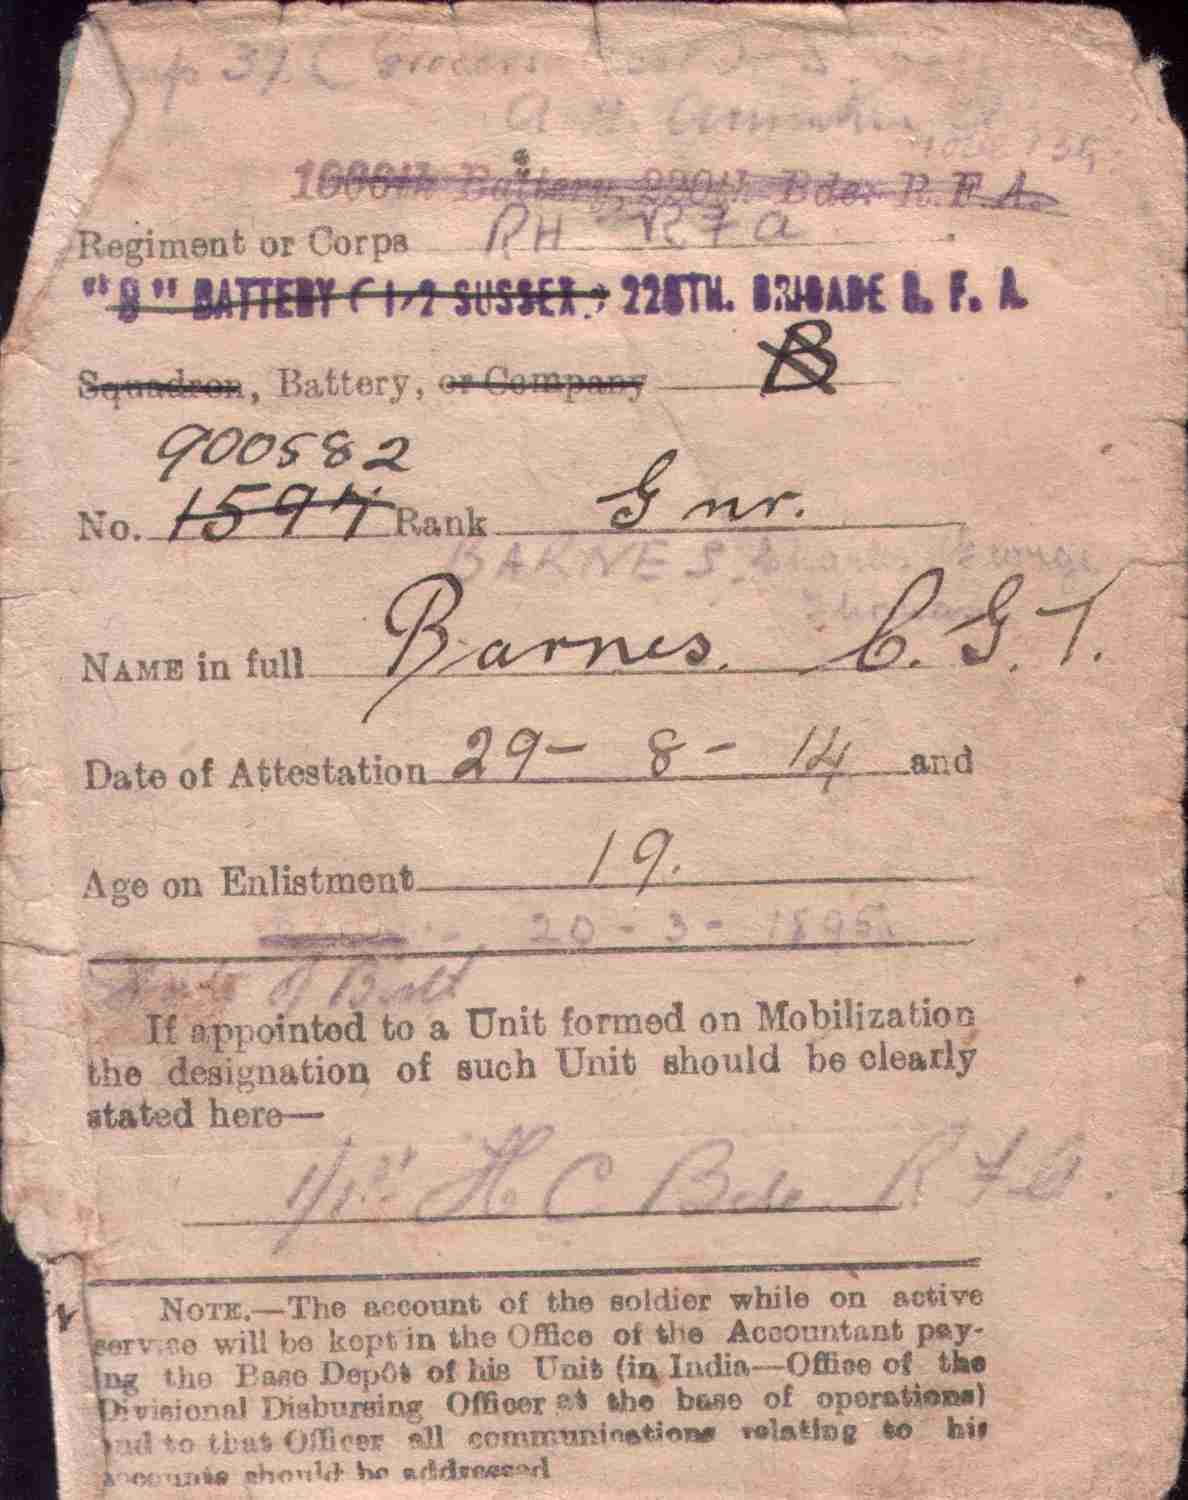 1066th Battery, 220th Bde. R.F.A.
Regiment or Corps RH RFA
"B" BATTERY (1/2 SUSSEX) 228TH. BRIGADE R. F. A.
Squadron, Battery, or Company B
900582
No. 1597 Rank Gnr.
BARNES, Charles George
Thomas
NAME in full Barnes. C. G. T.
Date of Attestation 29 - 8 - 14 and
Age on Enlistment 19.
20 - 3 - 1895
Date of Birth
If appointed to a Unit formed on Mobilization
the designation of such Unit should be clearly
stated here—
1/1st H C Bde R F A.
NOTE.—The account of the soldier while on active
service will be kept in the Office of the Accountant pay-
ing the Base Depôt of his Unit (in India—Office of the
Divisional Disbursing Officer at the base of operations)
and to that Officer all communications relating to his
accounts should be addressed